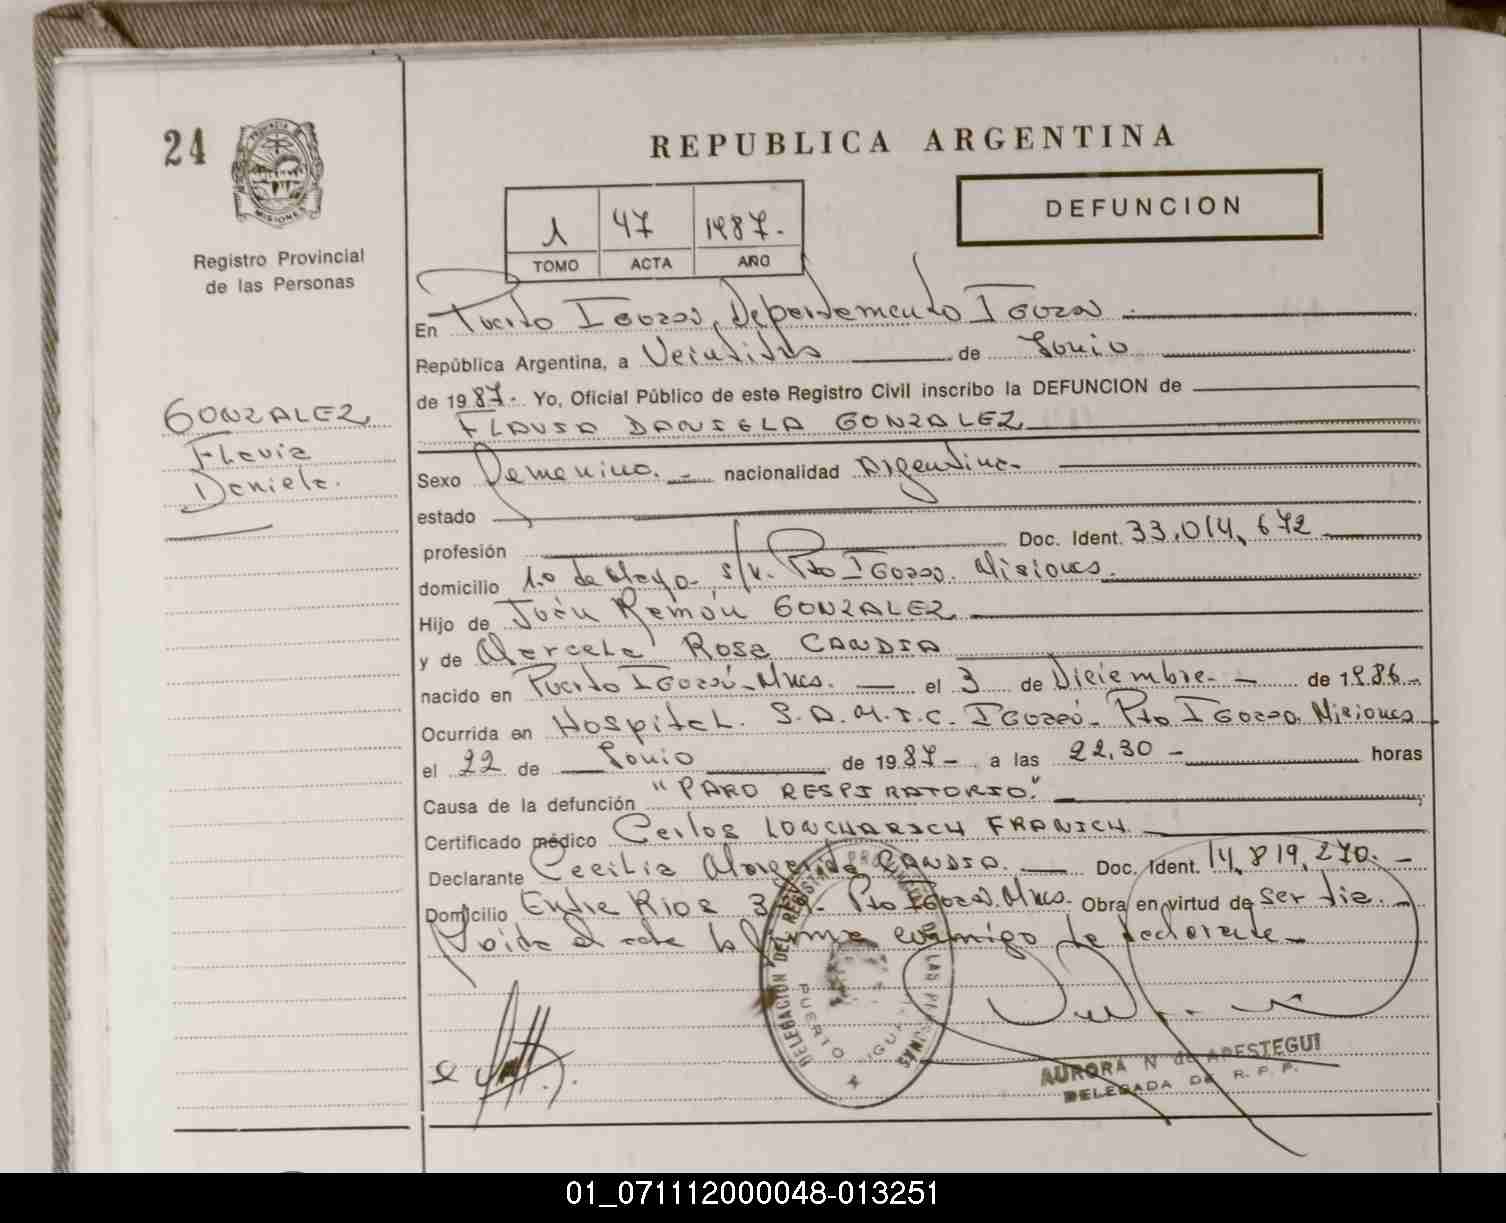 24
PROVINCIA DE MISIONES
Registro Provincial
de las Personas
REPUBLICA ARGENTINA
DEFUNCION
1 47 1987.-
TOMO ACTA AÑO
GONZALEZ
Flavia
Daniela.
En Puerto Iguazú, Departamento Iguazú
República Argentina, a Veintitrés de Junio
de 1987.- Yo, Oficial Público de este Registro Civil inscribo la DEFUNCION de
FLAVIA DANIELA GONZALEZ
Sexo Femenino. - nacionalidad Argentina-
estado
profesión Doc. Ident. 33.014.672
domicilio 1.º de Mayo- s/n. Pto Iguazú. Misiones.
Hijo de Juán Ramón GONZALEZ
y de Marcela Rosa CANDIA
nacido en Puerto Iguazú-Mnes. el 3 de Diciembre.- de 1986-
Ocurrida en Hospital. S.A.M.I.C. Iguazú- Pto Iguazú. Misiones
el 22 de Junio de 1987- a las 22,30 - horas
Causa de la defunción "PARO RESPIRATORIO."
Certificado médico Carlos LONCHARICH FRANICH
Declarante Cecilia Margarida CANDIA. Doc. Ident. 14.819.270.-
Domicilio Entre Rios 3 Pto Iguazú. Mnes. Obra en virtud de ser tia.-
Leida el acta la firma conmigo la declarante-
DELEGACION DEL REGISTRO PROVINCIAL DE LAS PERSONAS
PUERTO IGUAZU
AURORA N de ARESTEGUI
DELEGADA DE R. P. P.
01_071112000048-013251